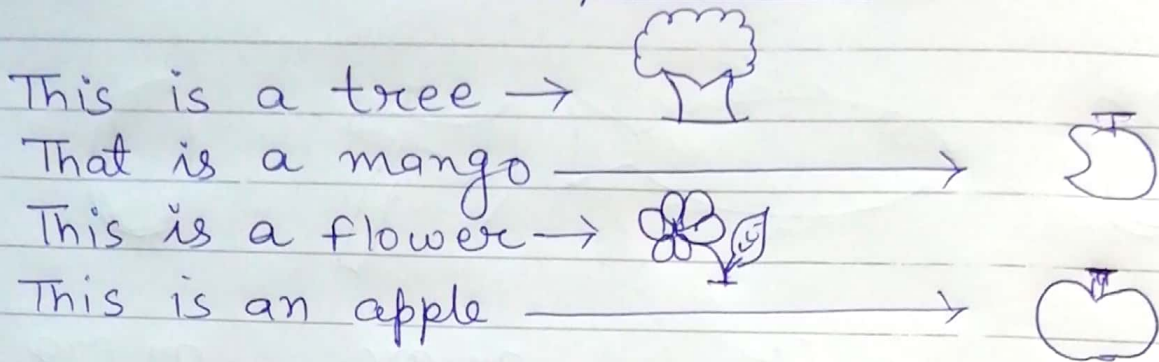 This is a tree →
That is a mango →
This is a flower →
This is an apple →